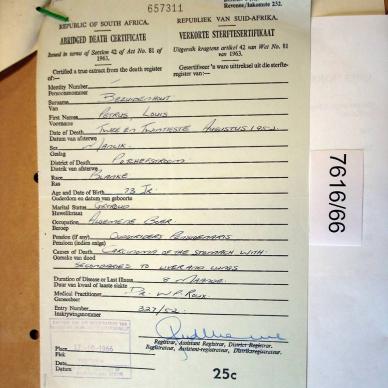 Revenue/Inkomste 252.
657311
REPUBLIC OF SOUTH AFRICA. REPUBLIEK VAN SUID-AFRIKA.
ABRIDGED DEATH CERTIFICATE VERKORTE STERFTESERTIFIKAAT
Issued in terms of Section 42 of Act No. 81 of 1963. Uitgereik kragtens artikel 42 van Wet No. 81 van 1963.
Certified a true extract from the death register of:— Gesertifiseer 'n ware uittreksel uit die sterfteregister van:—
Identity Number
Persoonsnommer
Surname Bezuidenhout
Van
First Names Petrus Louis
Voorname
Date of Death Twee en Twintigste Augustus 1952.
Datum van afsterwe
Sex Manlik.
Geslag
District of Death Potchefstroom
Distrik van afsterwe
Race Blanke
Ras
Age and Date of Birth 73 Jr.
Ouderdom en datum van geboorte
Marital Status Getroud
Huwelikstaat
Occupation Algemene Boer
Beroep
Pension (if any) Oudstryders Pensioenaris
Pensioen (indien enige)
Causes of Death Carcinoma of the stomach with
Oorsake van dood
secondaries to liver and lungs
Duration of Disease or Last Illness 8 Maande
Duur van kwaal of laaste siekte
Medical Practitioner Dr. W.P. Roux.
Geneesheer
Entry Number 327/52.
Inskrywingsnommer
Registrar, Assistant Registrar, District Registrar.
Registrateur, Assistent-registrateur, Distriksregistrateur.
Place
Plek
Date
Datum
1966
25c
7616/66